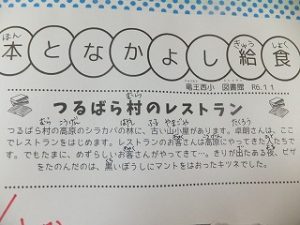 本となかよし給食
ほん きゅう しょく
竜王西小 図書館 R6.11
つるばら村のレストラン
むら
つるばら村の高原のシラカバの林に、古い山小屋があります。卓朗さんは、ここ
でレストランをはじめます。レストランのお客さんは高原にやってきた人たちで
す。でもたまに、めずらしいお客さんがやってきて…。きりが出たある夜、ピザ
をたのんだのは、黒いぼうしにマントをはおったキツネでした。